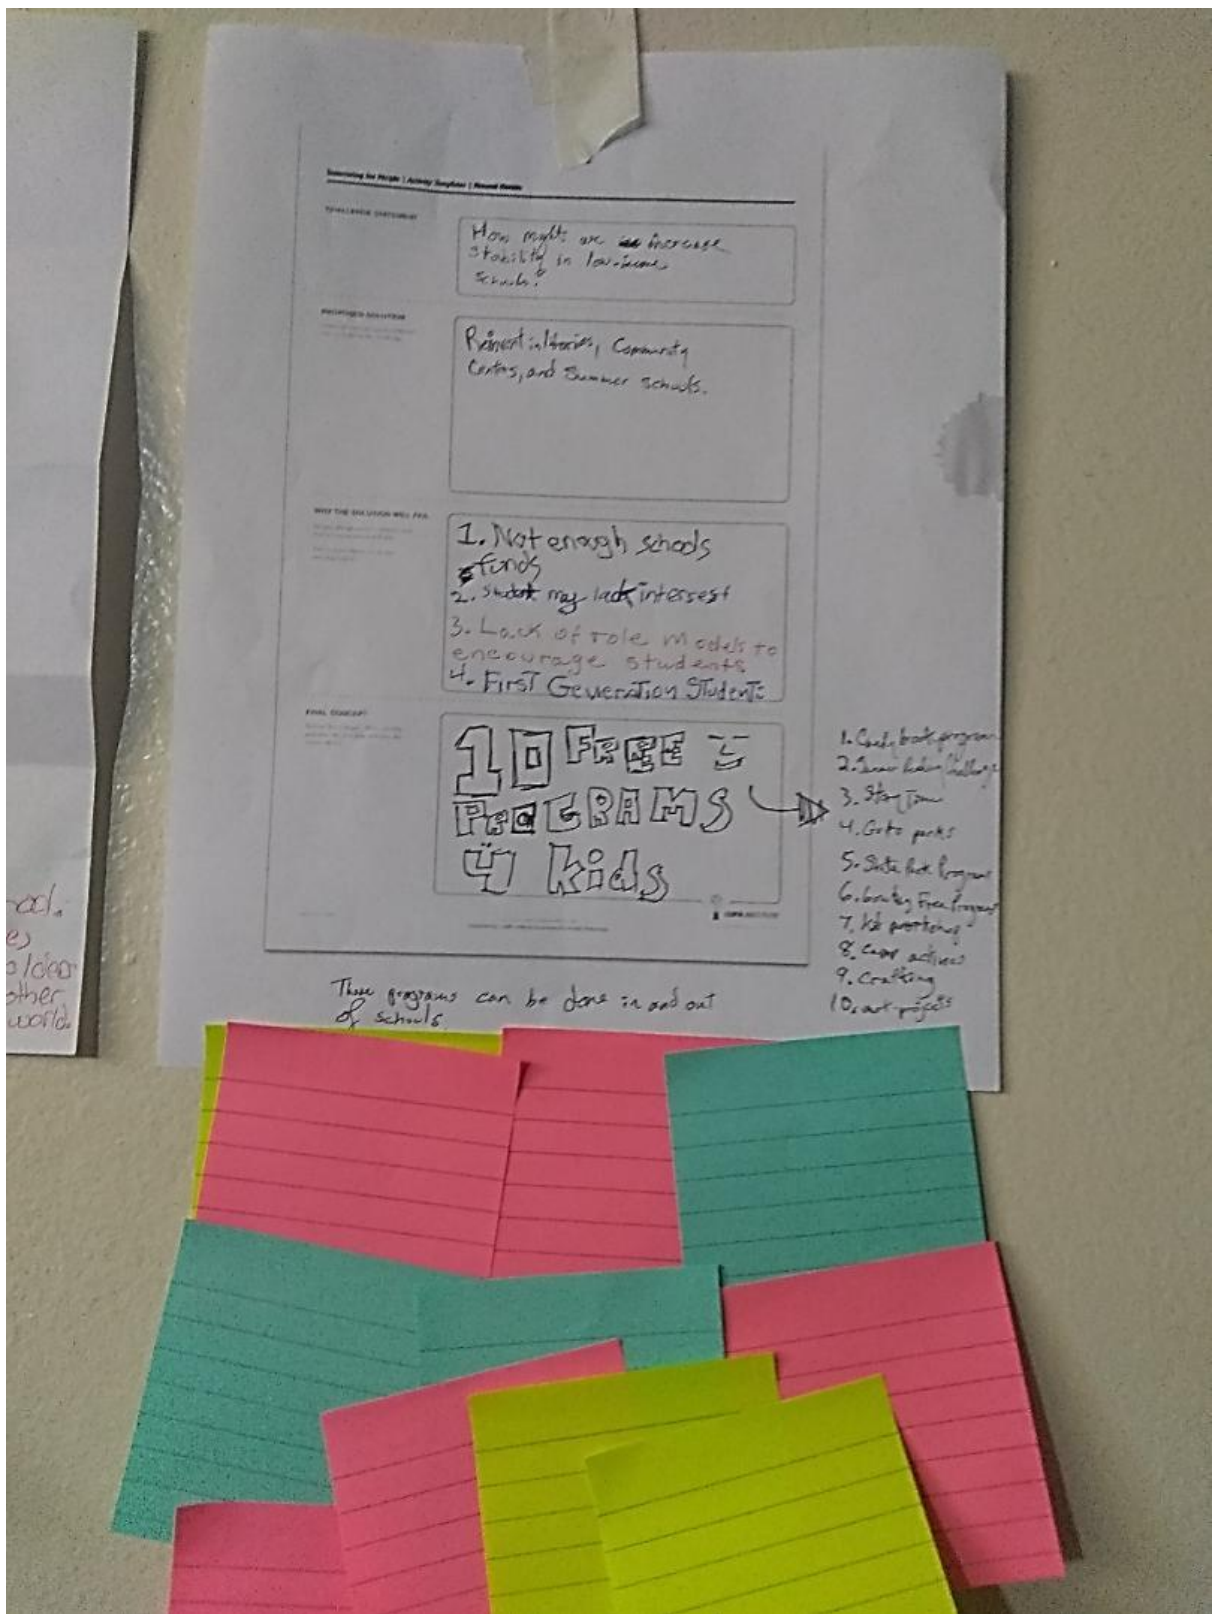 Innovating for People | Activity Templates | Round Robin
CHALLENGE STATEMENT
How might we increase
stability in low-income
schools?
PROPOSED SOLUTION
Reinvent libraries, Community
Centers, and Summer schools.
WHY THE SOLUTION WILL FAIL
1. Not enough schools
funds
2. Student may lack intersest
3. Lack of role models to
encourage students
4. First Generation Students
FINAL CONCEPT
10 FREE
PROGRAMS
4 kids
1. book program
2. Summer Reading Challenge
3. Story Time
4. Go to parks
5. State Park Program
6. Free Program
7. workshop
8. Camp
9. Crafting
10. art projects
LUMA INSTITUTE
These programs can be done in and out
of schools
other
world.